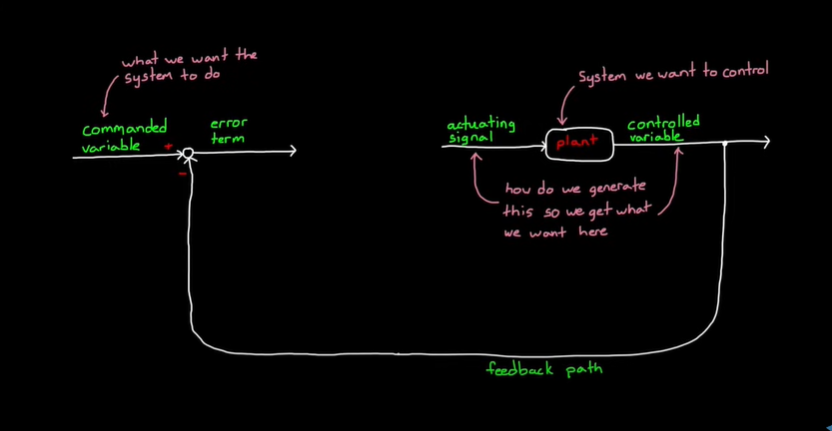 what we want the
system to do
commanded
variable
+
-
error
term
System we want to control
actuating
signal
plant
controlled
variable
how do we generate
this so we get what
we want here
feedback path